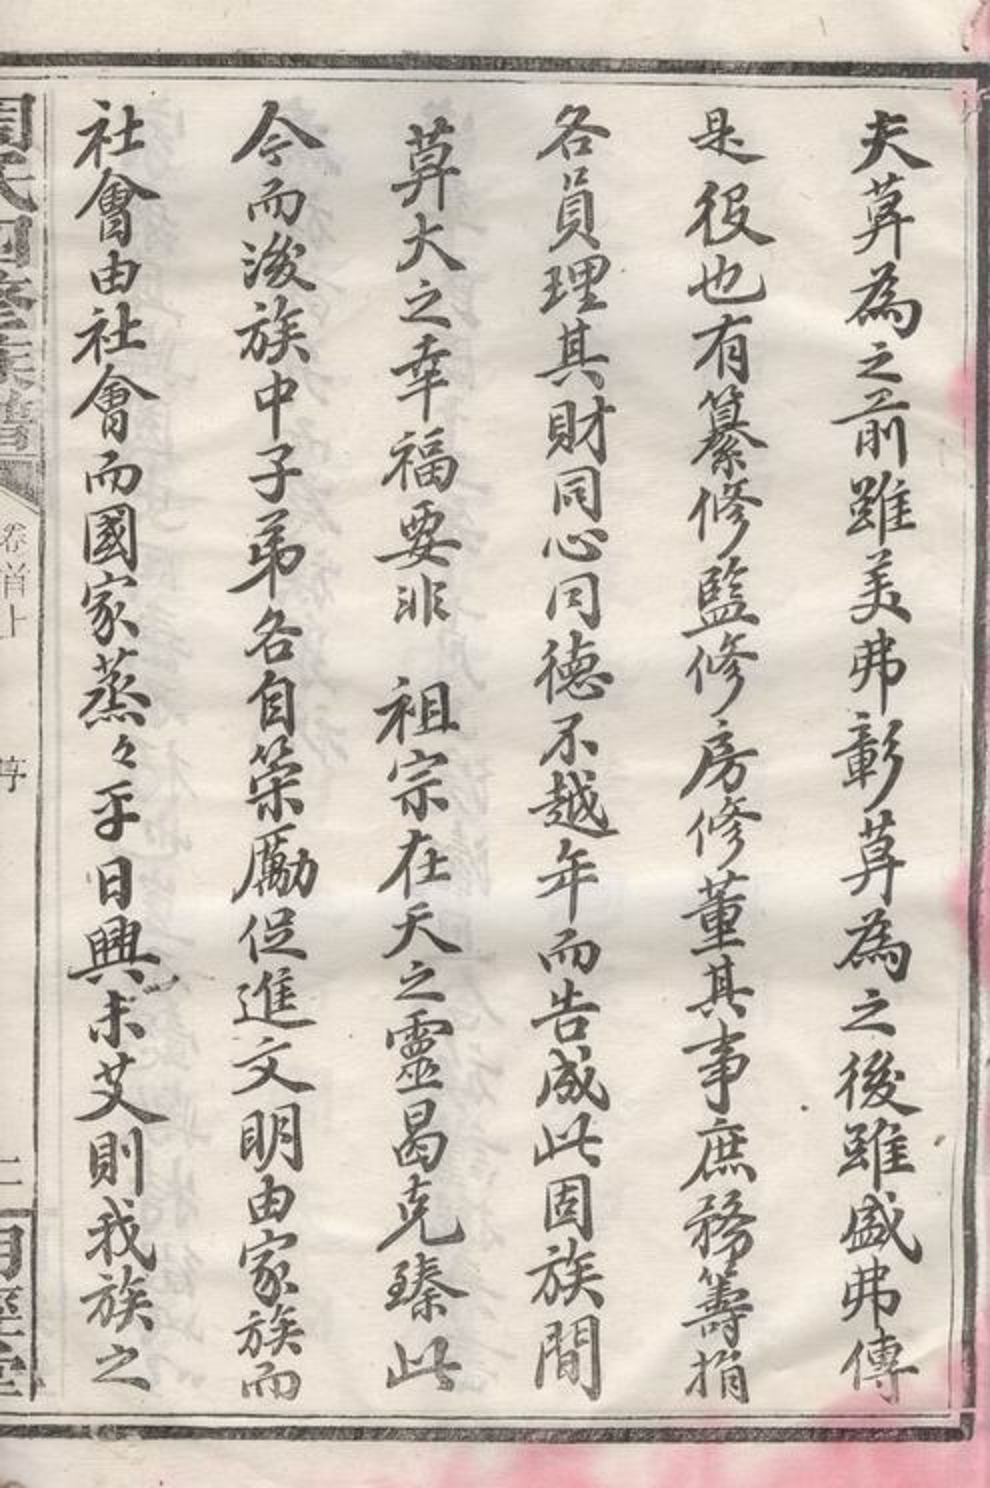 夫莫為之前雖美弗彰莫為之後雖盛弗傳
是役也有纂修監修房修董其事庶務籌捐
各員理其財同心同德不越年而告成此固族間
莫大之幸福要非 祖宗在天之靈曷克臻此
今而後族中子弟各自策勵促進文明由家族而
社會由社會而國家蒸々乎日興未艾則我族之
周氏四修族譜
卷首上
序
二